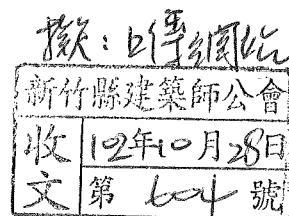 擬：口傳網站
新竹縣建築師公會
收文
102年10月28日
第 604 號